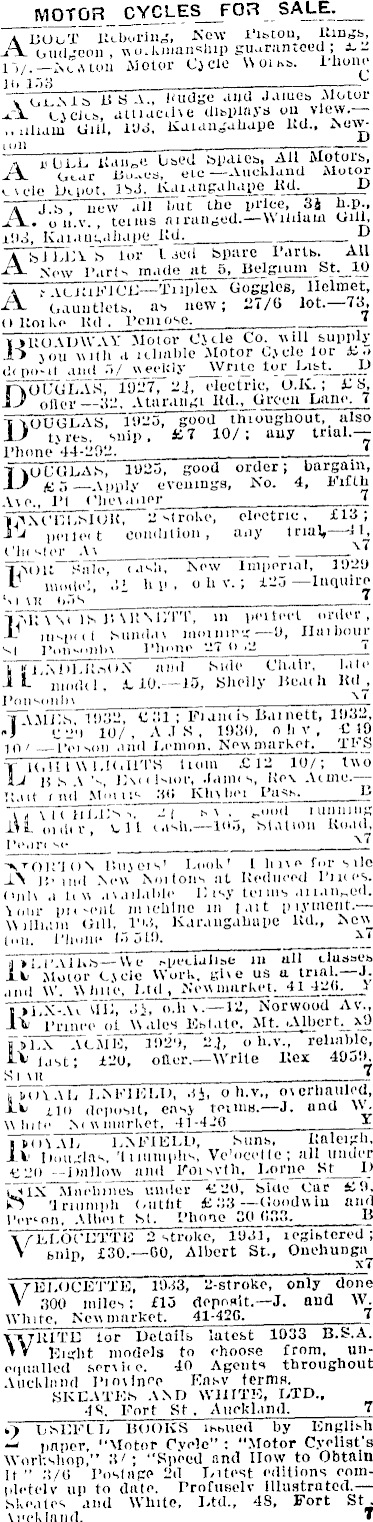 MOTOR CYCLES FOR SALE.
ABOUT Reboring, New Piston, Rings,
Gudgeon, workmanship guaranteed; £2
15/.—Newton Motor Cycle Works. Phone
46 153 C
AGENTS BSA., Rudge and James Motor
Cycles, attractive displays on view.—
William Gill, 193, Karangahape Rd., New-
ton D
A FULL Range Used Spares, All Motors,
Gear Boxes, etc—Auckland Motor
Cycle Depot, 183, Karangahape Rd. D
A.J.S, new all but the price, 3½ h.p.,
o h.v., terms arranged.—William Gill,
193, Karangahape Rd. D
ASTLEY'S for Used Spare Parts. All
New Parts made at 5, Belgium St. 10
A SACRIFICE—Triplex Goggles, Helmet,
Gauntlets, as new; 27/6 lot.—73,
O'Rorke Rd, Penrose. 7
BROADWAY Motor Cycle Co. will supply
you with a reliable Motor Cycle for £5
deposit and 5/ weekly Write for List. D
DOUGLAS, 1927, 2¾, electric, O.K.; £8,
offer—32, Atarangi Rd., Green Lane. 7
DOUGLAS, 1925, good throughout, also
tyres, snip, £7 10/; any trial.—
Phone 44-292. 7
DOUGLAS, 1925, good order; bargain,
£5—Apply evenings, No. 4, Fifth
Ave., Pt Chevalier 7
EXCELSIOR, 2 stroke, electric, £13;
perfect condition, any trial,—
Chester Av x7
FOR Sale, cash, New Imperial, 1929
model, 3½ h p, o h v.; £25—Inquire
STAR 658 7
FRANCIS BARNETT, in perfect order,
inspect Sunday morning—9, Harbour
St Ponsonby Phone 27 052 7
HENDERSON and Side Chair, late
model, £10.—15, Shelly Beach Rd,
Ponsonby x7
JAMES, 1932, £31; Francis Barnett, 1932,
£29 10/, A J S, 1930, o h v, £49
10/—Person and Lemon, Newmarket. TFS
LIGHTWEIGHTS from £12 10/; two
B S A's, Excelsior, James, Rex Acme.—
Rait and Morris 36 Khyber Pass. B
MATCHLESS, 2¾ s v, good running
order, £11 cash.—105, Station Road,
Penrose x7
NORTON Buyers! Look! I have for sale
Brand New Nortons at Reduced Prices.
Only a few available Easy terms arranged.
Your present machine in part payment.—
William Gill, 193, Karangahape Rd., New
ton. Phone x7
REPAIRS—We specialise in all classes
Motor Cycle Work, give us a trial.—J.
and W. White, Ltd, Newmarket. 41-426. Y
REX-ACME, 3½, o.h v.—12, Norwood Av.,
Prince of Wales Estate, Mt. Albert. x9
REX ACME, 1929, 2¾, o h.v., reliable,
fast; £20, offer.—Write Rex 4959,
STAR 7
ROYAL ENFIELD, 3½, o h.v., overhauled,
£10 deposit, easy terms.—J. and W.
White Newmarket. 41-426 Y
ROYAL ENFIELD, Suns, Raleigh,
Douglas, Triumphs, Velocette; all under
£20—Dallow and Forsyth, Lorne St D
SIX Machines under £20, Side Car £9,
Triumph Outfit £33—Goodwin and
Person, Albert St. Phone 30 633. B
VELOCETTE 2 stroke, 1931, registered;
snip, £30.—60, Albert St., Onehunga
x7
VELOCETTE, 1933, 2-stroke, only done
300 miles; £15 deposit.—J. and W.
White, Newmarket. 41-426. 7
WRITE for Details latest 1933 B.S.A.
Eight models to choose from, un-
equalled service. 40 Agents throughout
Auckland Province Easy terms.
SKEATES AND WHITE, LTD.,
48, Fort St, Auckland. 7
2 USEFUL BOOKS issued by English
paper, "Motor Cycle": "Motor Cyclist's
Workshop," 3/; "Speed and How to Obtain
It" 3/6 Postage 2d Latest editions com-
pletely up to date. Profusely Illustrated.—
Skeates and White, Ltd., 48, Fort St,
Auckland. 7